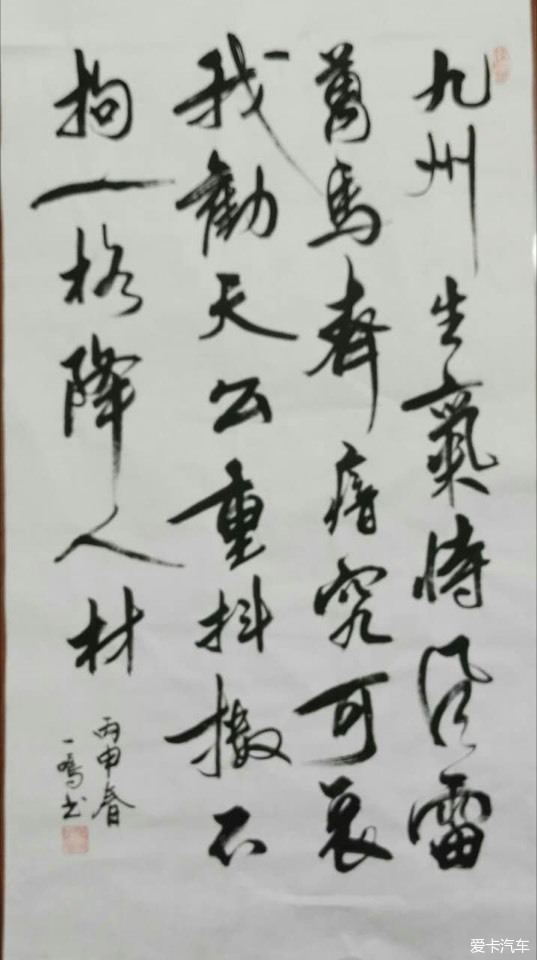 九州生氣恃風雷
萬馬齊瘖究可哀
我勸天公重抖擻不
拘一格降人材
丙申春
一鳴书
爱卡汽车